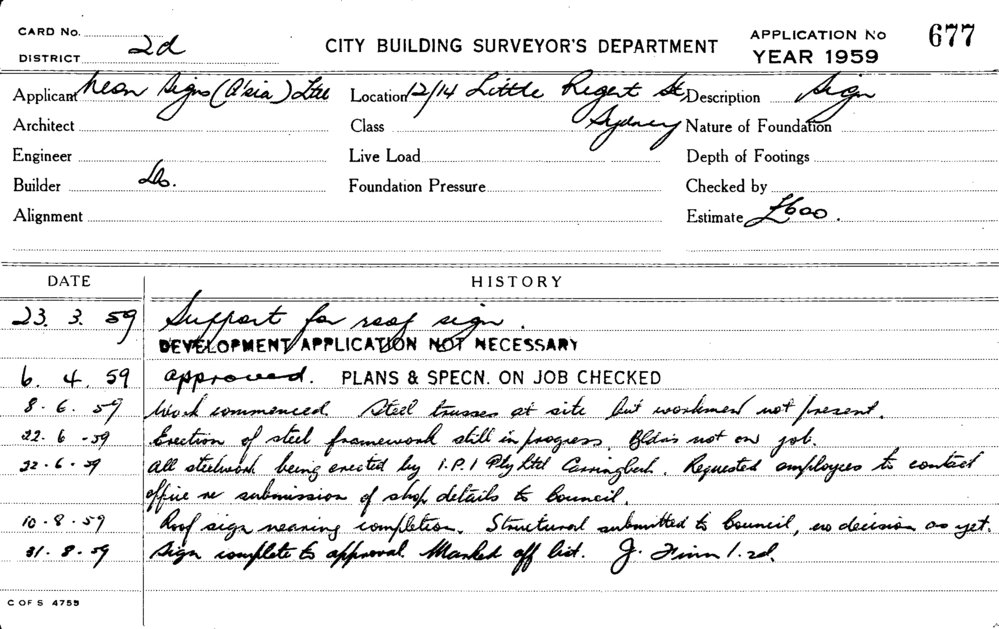 CARD No.
DISTRICT 2d
CITY BUILDING SURVEYOR'S DEPARTMENT
APPLICATION No 677
YEAR 1959
Applicant Neon Signs (A'sia) Ltd Location 12/14 Little Regent St, Sydney Description Sign
Architect Class Nature of Foundation
Engineer Live Load Depth of Footings
Builder Do. Foundation Pressure Checked by
Alignment Estimate £600.
DATE HISTORY
23. 3. 59 Support for roof sign.
DEVELOPMENT APPLICATION NOT NECESSARY
6. 4. 59 approved. PLANS & SPECN. ON JOB CHECKED
8. 6. 59 Work commenced. Steel trusses at site but workmen not present.
22. 6. 59 Erection of steel framework still in progress. Bldrs not on job.
22. 6. 59 All steelwork being erected by I.P.I Pty Ltd. Requested employees to contact
office re submission of shop details to Council.
10. 8. 59 Roof sign nearing completion. Structural submitted to Council, no decision as yet.
31. 8. 59 Sign complete to approval. Marked off list. J. Finn 1.2d.
C OF S 4759